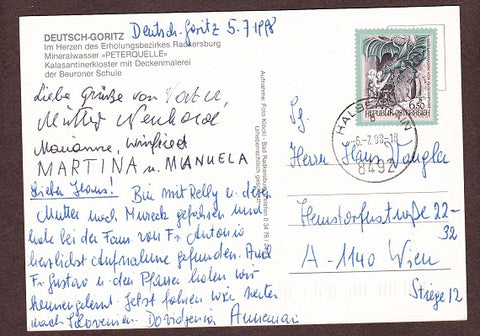 Deutsch-Goritz 5.7.1998
DEUTSCH-GORITZ
Im Herzen des Erholungsbezirkes Radkersburg
Mineralwasser »PETERQUELLE«
Kalasantinerkloster mit Deckenmalerei
der Beuroner Schule
Liebe Grüsse von Vater,
Mutter
Marianne, Winfried
MARTINA u. MANUELA
Lieber Hans! Bin mit Relly u. deren
Mutter nach Mureck gefahren und
habe bei der Fam. von Fr. Antonio
herzlichst Aufnahme gefunden. Auch
Fr. Gustav u. den Pfarrer haben wir
kennengelernt. Jetzt fahren wir weiter
nach Slovenien. Dovidjenia Annemarie
Aufnahme: Foto Bad Radkersburg
REPUBLIK ÖSTERREICH
8492
Herrn Hans
A-1140 Wien
Stiege 12